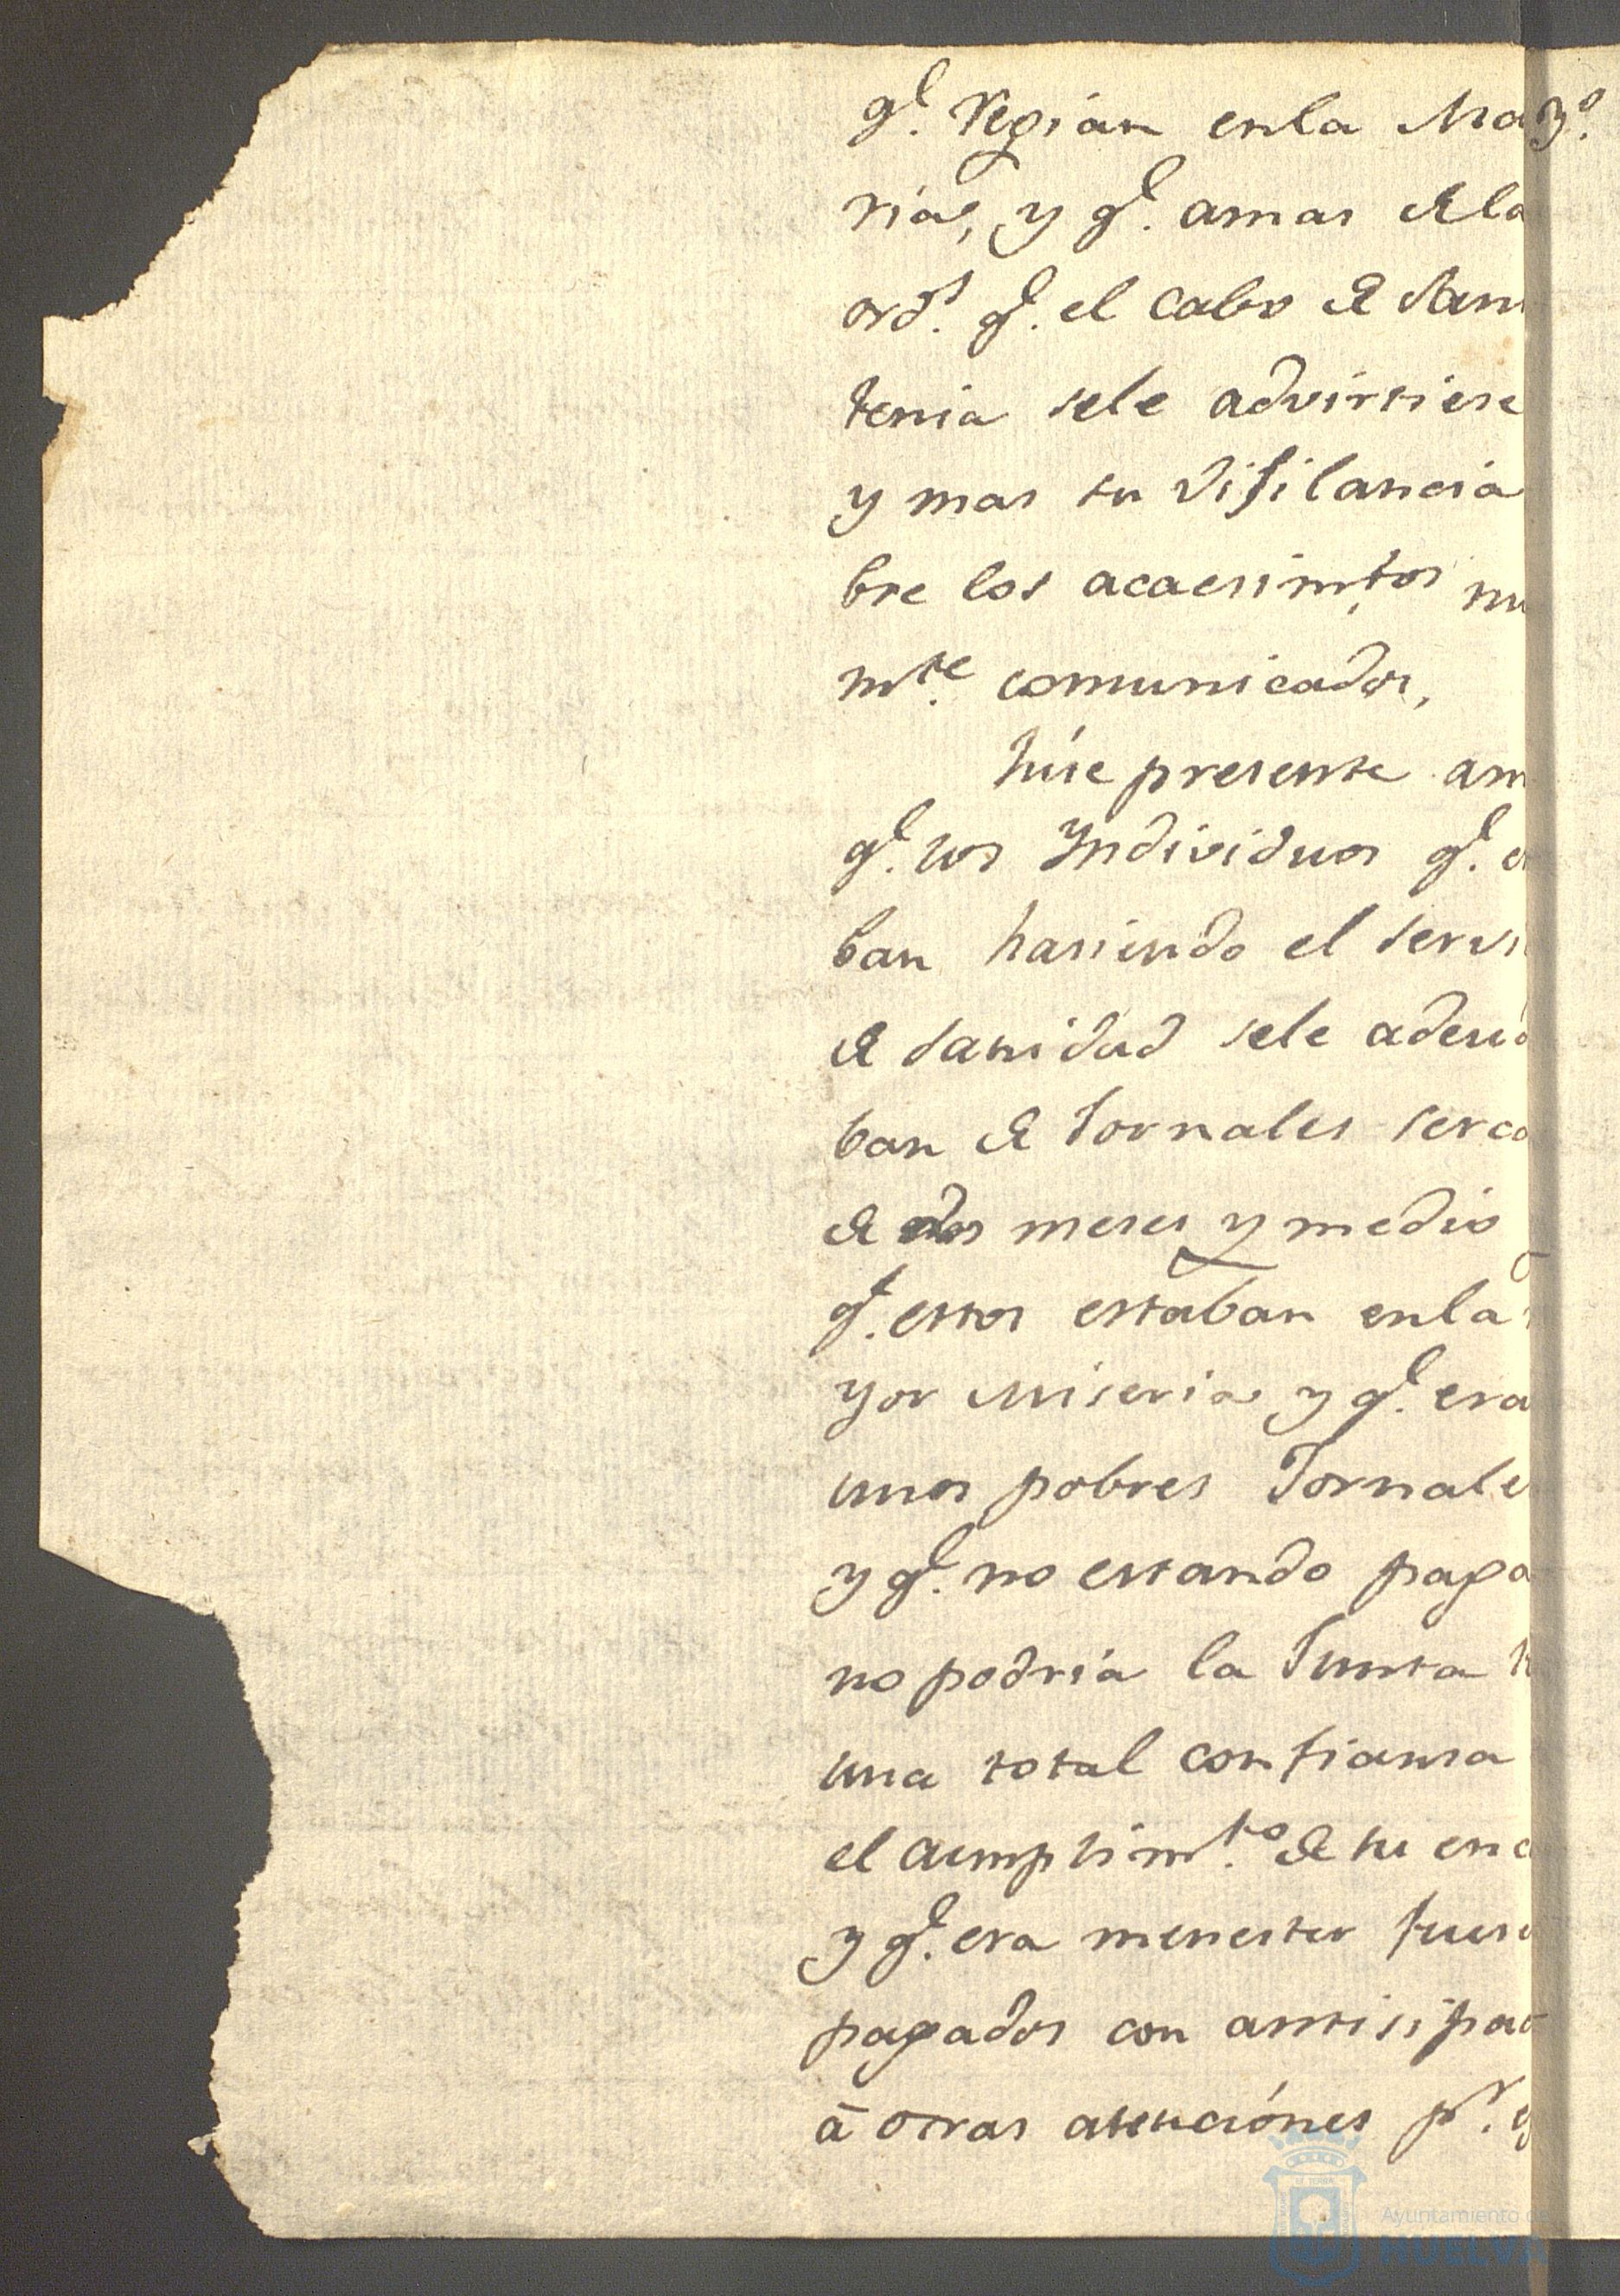 q.e Regian enla Ma
rias, y q.e amas dela
ord.s q.e el cabo de San
tenia sele advirtiese
y mas su Vijilancia
bre los acaesim.tos nu
m.te comunicados,
hise presente am
q.e los Yndividuos q.e e
ban hasiendo el servi
de sanidad sele adeud
ban de Jornales serca
de dos meses y medio
q.e estos estaban enla
yor miseria y q.e era
unos pobres Jornale
y q.e no estando paga
no podria la Junta t
una total confiansa
el cumplim.to de su enc
y q.e era menester fuese
pagados con antisipac
á otras atenciónes p.r
Ayuntamiento de
HUELVA